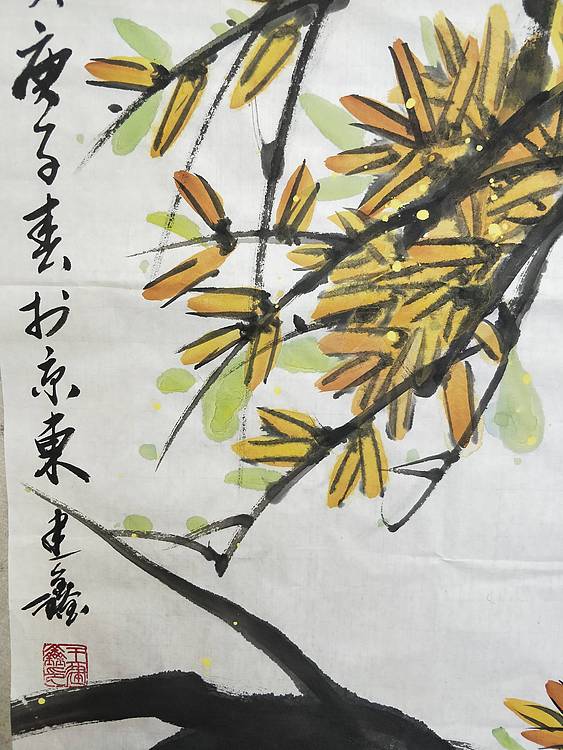 庚子春於京東
建鑫
王建鑫印